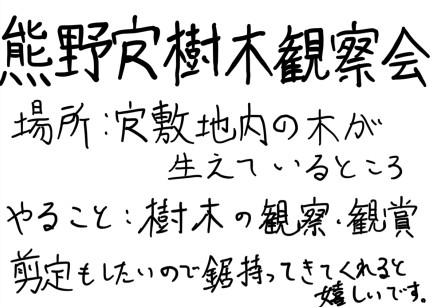 熊野穴樹木観察会
場所：穴敷地内の木が
生えているところ
やること：樹木の観察・観賞
剪定もしたいので鋸持ってきてくれると
嬉しいです。